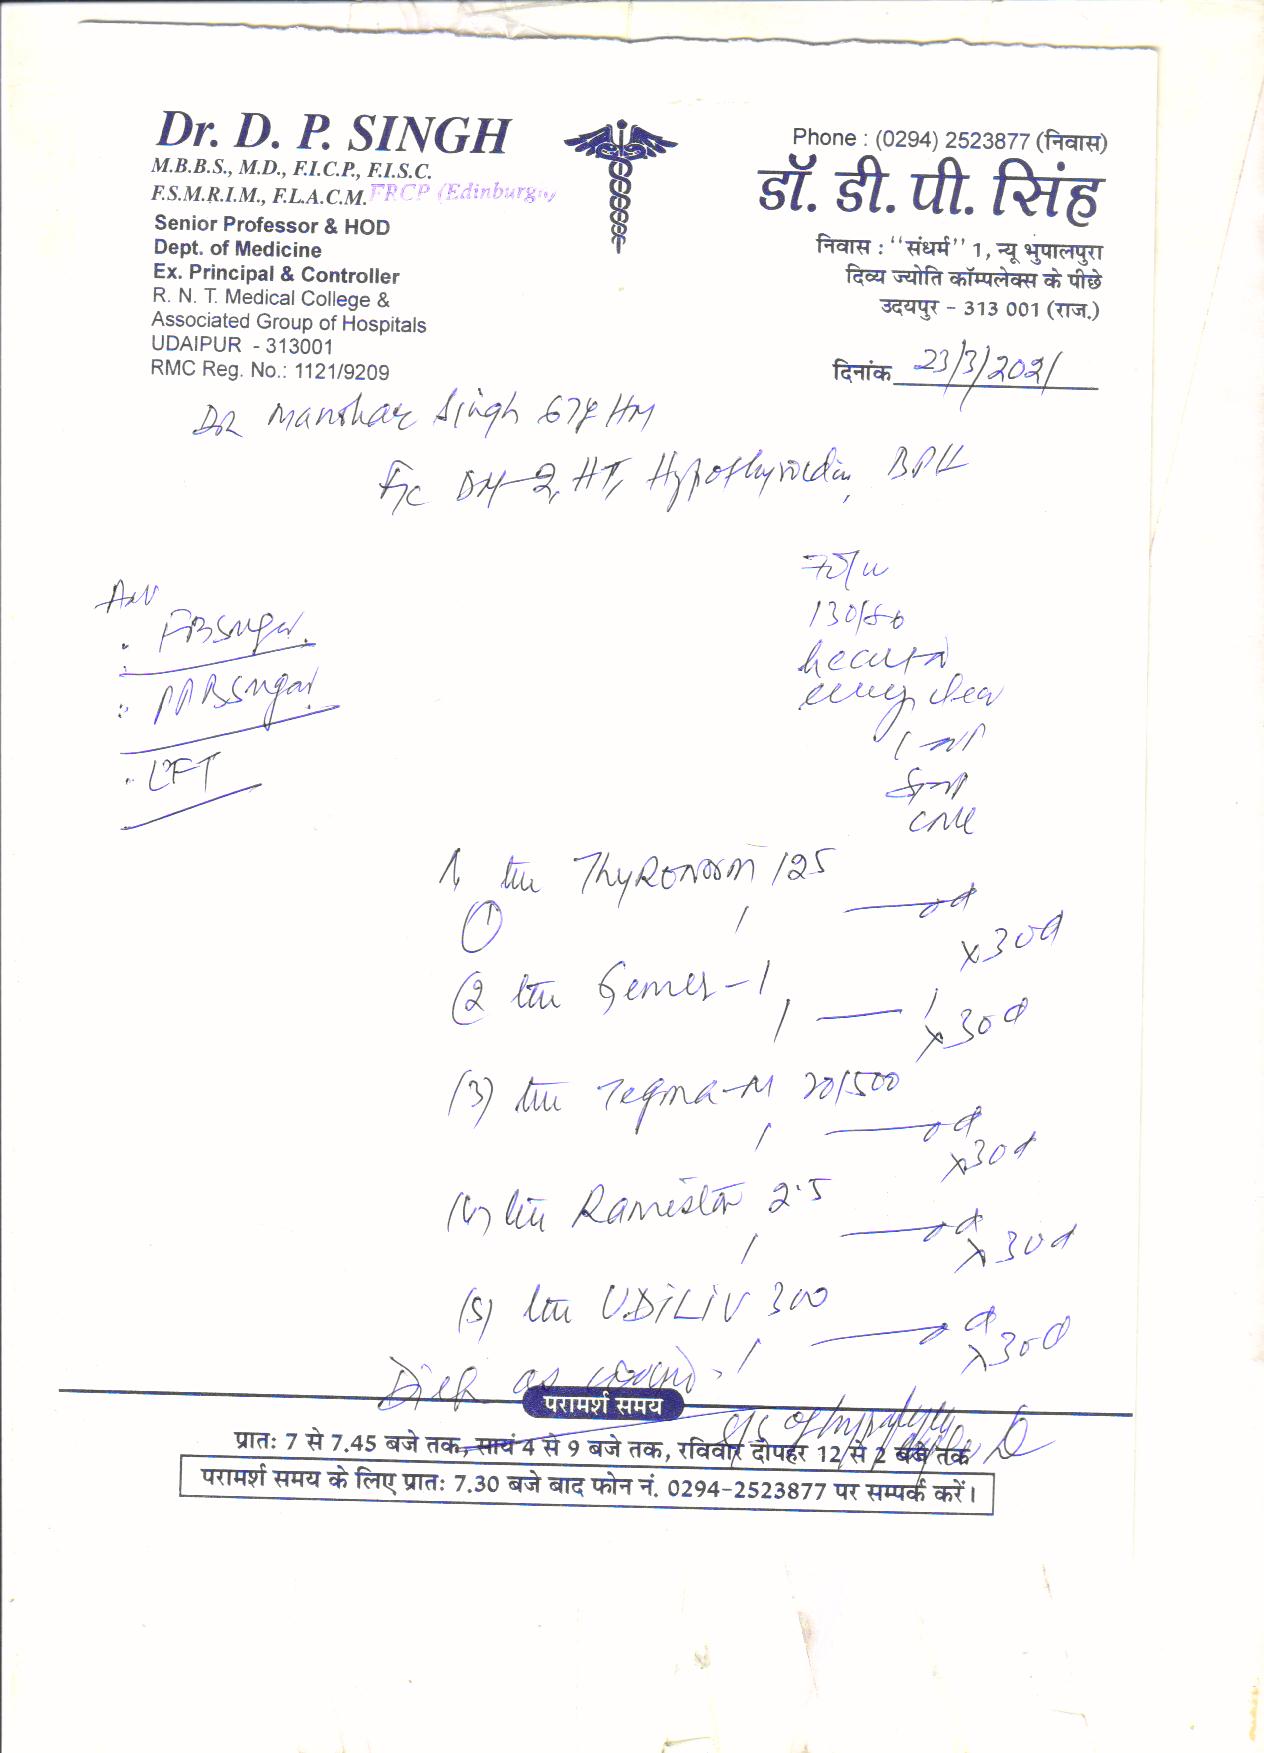 Dr. D. P. SINGH
M.B.B.S., M.D., F.I.C.P., F.I.S.C.
F.S.M.R.I.M., F.L.A.C.M. FRCP (Edinburgh)
Senior Professor & HOD
Dept. of Medicine
Ex. Principal & Controller
R. N. T. Medical College &
Associated Group of Hospitals
UDAIPUR - 313001
RMC Reg. No.: 1121/9209
Phone : (0294) 2523877 (निवास)
डॉ. डी. पी. सिंह
निवास : "संधर्म" 1, न्यू भुपालपुरा
दिव्य ज्योति कॉम्पलेक्स के पीछे
उदयपुर - 313 001 (राज.)
दिनांक 23/3/2021
DR Manohar Singh 67y HM
DM-2, HT, Hypothyroidism, BPH
70/m
130/80
chest clear
CNS
Adv
. FBSugar
: PPBSugar
. LFT
1, Thyronorm 125
1 od
x30d
(2 Gemer-1
1 1
x30d
(3) Tegma-M 20/500
1 od
x30d
(4) Ramistar 2.5
1 od
x30d
(5) UDILIV 300
1 od
x30d
Diet as
परामर्श समय
प्रातः 7 से 7.45 बजे तक, सायं 4 से 9 बजे तक, रविवार दोपहर 12 से 2 बजे तक
परामर्श समय के लिए प्रातः 7.30 बजे बाद फोन नं. 0294-2523877 पर सम्पर्क करें।